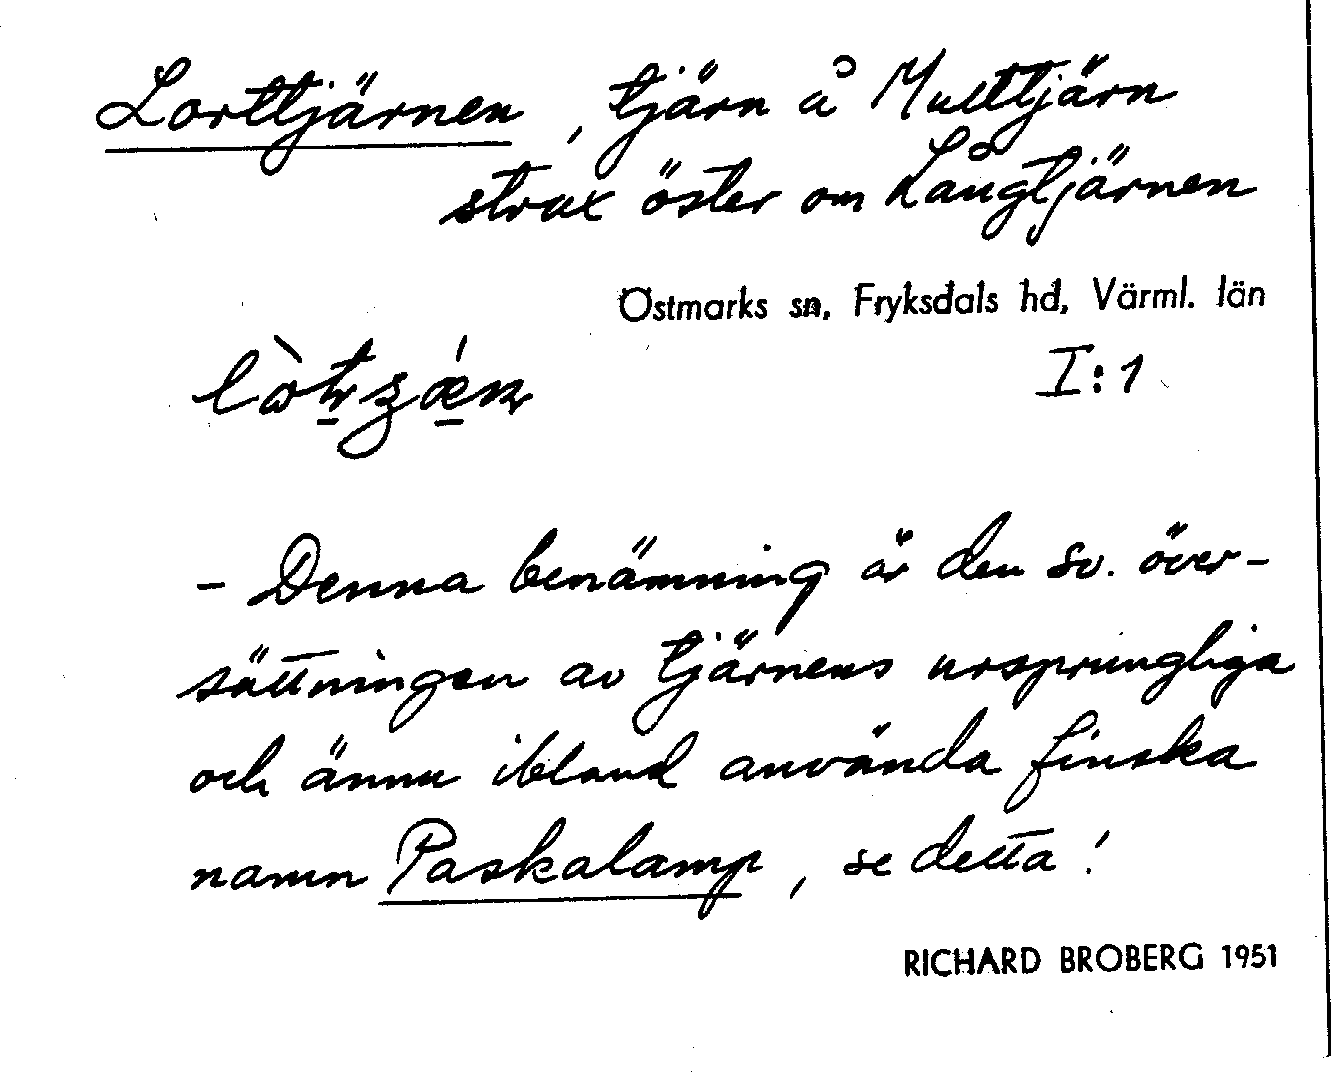 Lorttjärnen, tjärn å Multtjärn
strax öster om Långtjärnen
Östmarks sn, Fryksdals hd, Värml. län
I:1
- Denna benämning är den sv. över-
sättningen av tjärnens ursprungliga
och ännu ibland använda finska
namn Paskalamp, se detta!
RICHARD BROBERG 1951